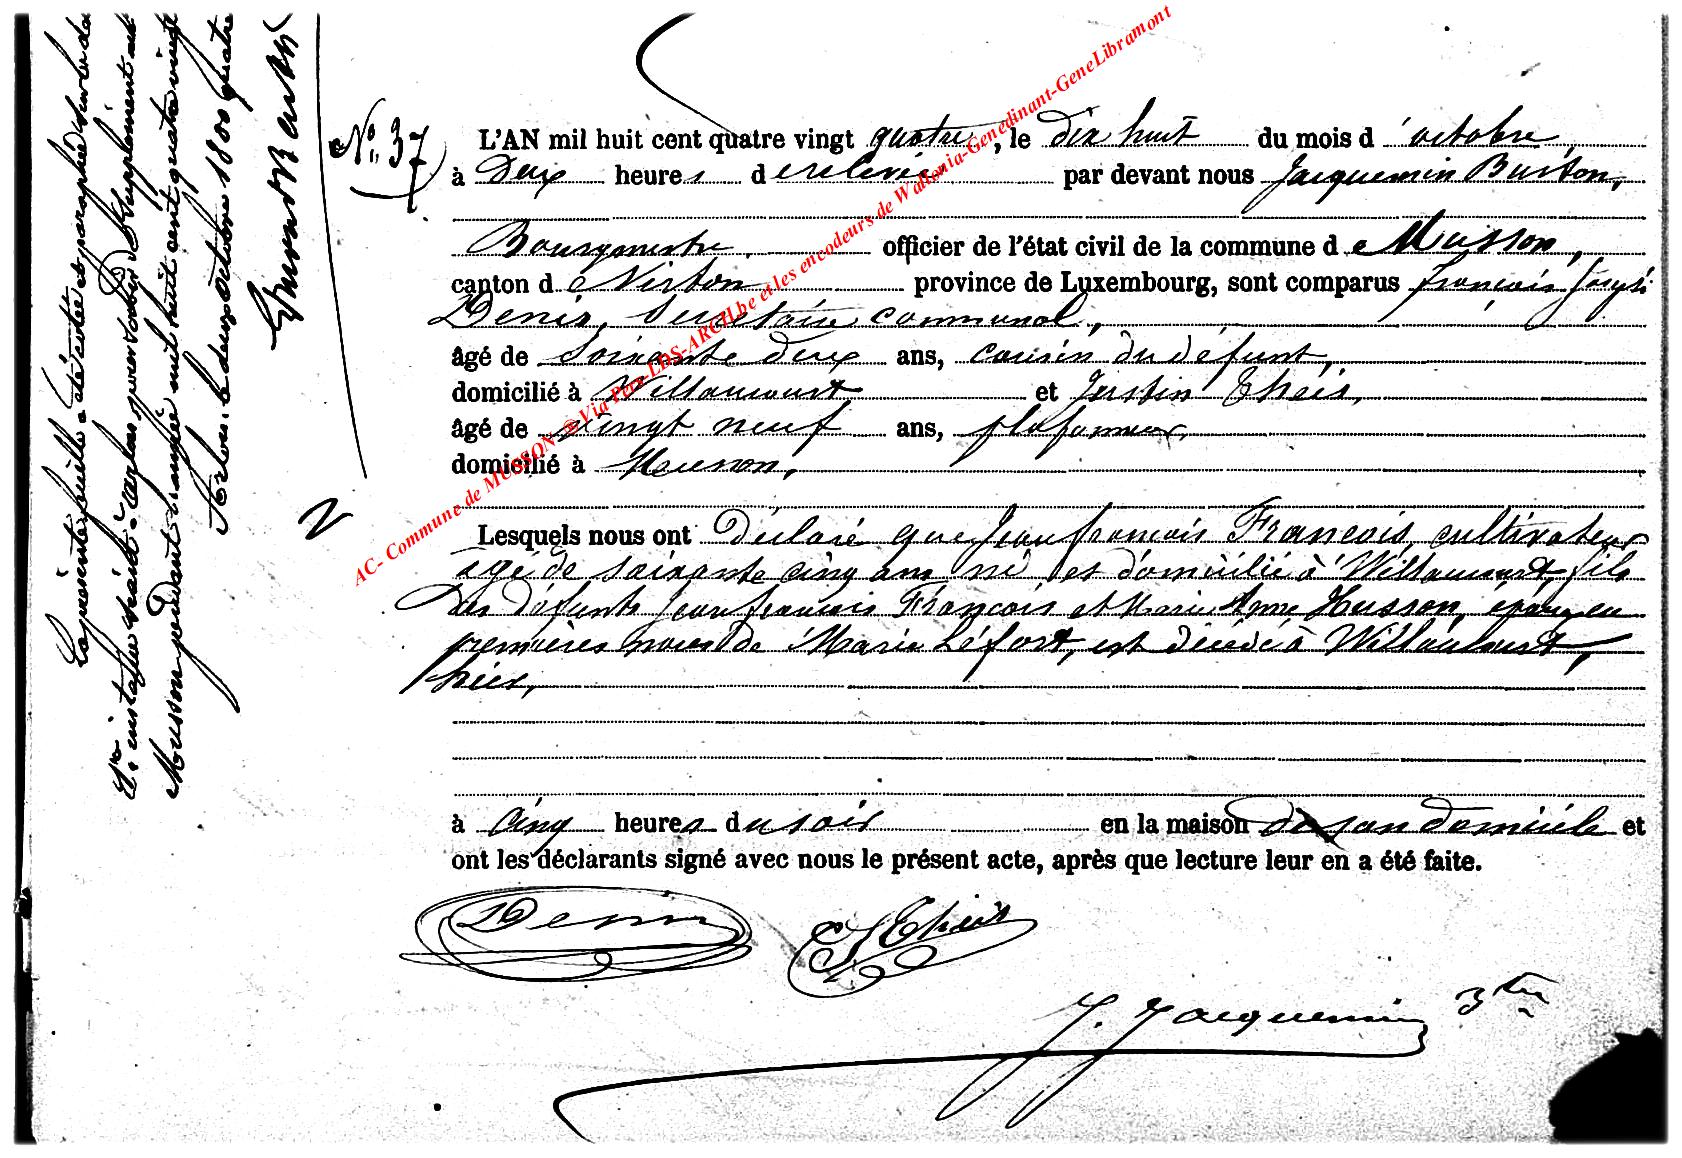 La présente feuille a été cotée et paraphée par le
à Arlon, pour servir de supplément aux
Musson pendant l'année mil huit cent quatre vingt
Arlon, le douze octobre 1800 quatre
N° 37
L'AN mil huit cent quatre vingt quatre, le dix huit du mois d'octobre,
à Deux heures de relevée par devant nous Jacquemin Buston,
Bourgmestre, officier de l'état civil de la commune de Musson,
canton de Virton province de Luxembourg, sont comparus françois Joseph
Denis, Secrétaire communal,
âgé de soixante deux ans, cousin du défunt,
domicilié à Willancourt et Justin Theis,
âgé de vingt neuf ans, plafonneur,
domicilié à Musson,
Lesquels nous ont déclaré que Jean françois François, cultivateur
âgé de soixante cinq ans né et domicilié à Willancourt, fils
des défunts Jean françois François et Marie Anne Husson, époux en
premières noces de Marie Léfort, est décédé à Willancourt,
hier,
à cinq heures du soir en la maison de son domicile et
ont les déclarants signé avec nous le présent acte, après que lecture leur en a été faite.
Denis
J Theis
J. Jacquemin Btn
AC- Commune de MUSSON @Via Pers-LDS-ARCH.be et les encodeurs de Wallonia-Genedinant-GeneLibramont